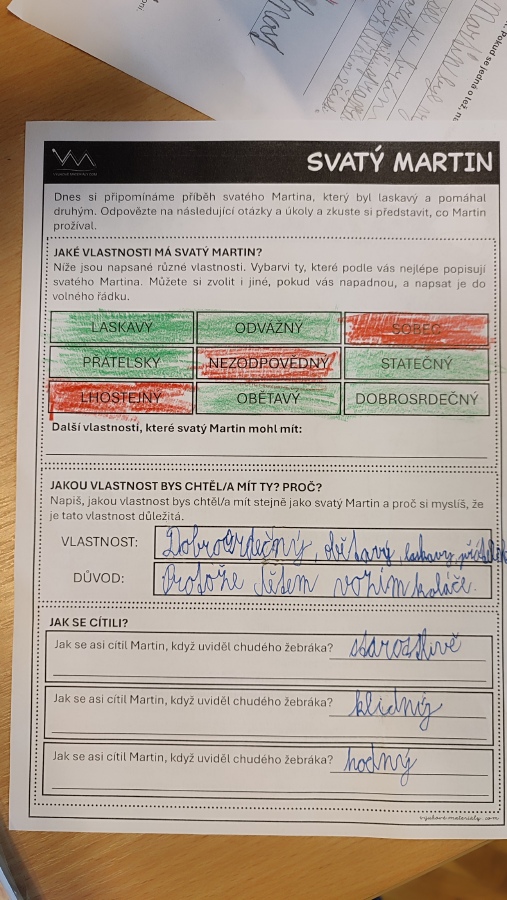 Pokud se jedná o lež, na
SVATÝ MARTIN
Dnes si připomínáme příběh svatého Martina, který byl laskavý a pomáhal
druhým. Odpovězte na následující otázky a úkoly a zkuste si představit, co Martin
prožíval.
JAKÉ VLASTNOSTI MÁ SVATÝ MARTIN?
Níže jsou napsané různé vlastnosti. Vybarvi ty, které podle vás nejlépe popisují
svatého Martina. Můžete si zvolit i jiné, pokud vás napadnou, a napsat je do
volného řádku.
LASKAVÝ ODVÁŽNÝ SOBEC
PŘÁTELSKÝ NEZODPOVĚDNÝ STATEČNÝ
LHOSTEJNÝ OBĚTAVÝ DOBROSRDEČNÝ
Další vlastnosti, které svatý Martin mohl mít:
JAKOU VLASTNOST BYS CHTĚL/A MÍT TY? PROČ?
Napiš, jakou vlastnost bys chtěl/a mít stejně jako svatý Martin a proč si myslíš, že
je tato vlastnost důležitá.
VLASTNOST: Dobrosrdečný, obětavý, laskavý,
DŮVOD: Protože dětem vozím koláče.
JAK SE CÍTILI?
Jak se asi cítil Martin, když uviděl chudého žebráka? starostlivě
Jak se asi cítil Martin, když uviděl chudého žebráka? klidný
Jak se asi cítil Martin, když uviděl chudého žebráka? hodný